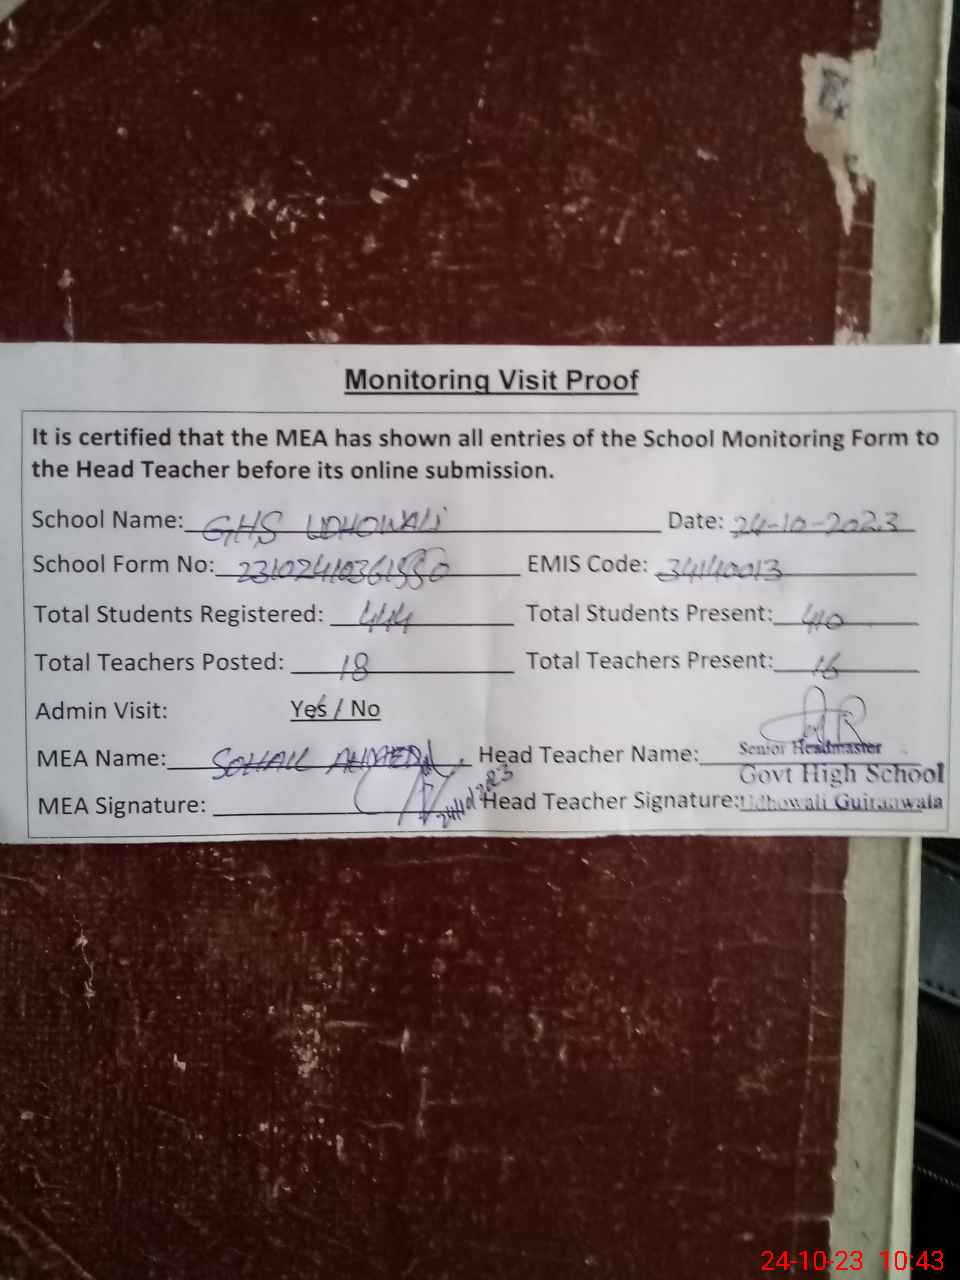 Monitoring Visit Proof
It is certified that the MEA has shown all entries of the School Monitoring Form to
the Head Teacher before its online submission.
School Name: GHS UDHOWALI Date: 24-10-2023
School Form No: EMIS Code: 34140013
Total Students Registered: 444 Total Students Present: 410
Total Teachers Posted: 18 Total Teachers Present: 16
Admin Visit: Yes / No
MEA Name: SOHAIL AHMED Head Teacher Name:
Senior Headmaster
Govt High School
MEA Signature: Head Teacher Signature: Udhowali Gujranwala
24-10-23 10:43